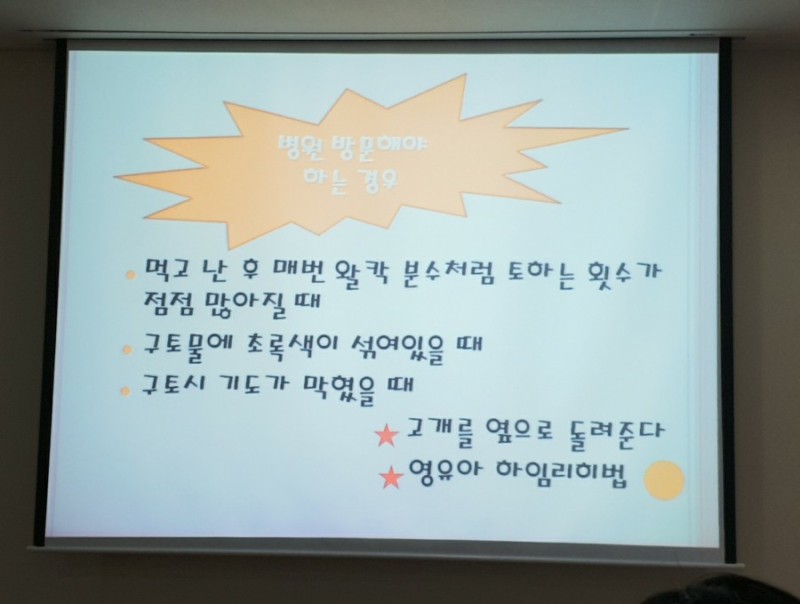 병원 방문해야
하는 경우
먹고 난 후 매번 왈칵 분수처럼 토하는 횟수가
점점 많아질 때
구토물에 초록색이 섞여있을 때
구토시 기도가 막혔을 때
고개를 옆으로 돌려준다
영유아 하임리히법